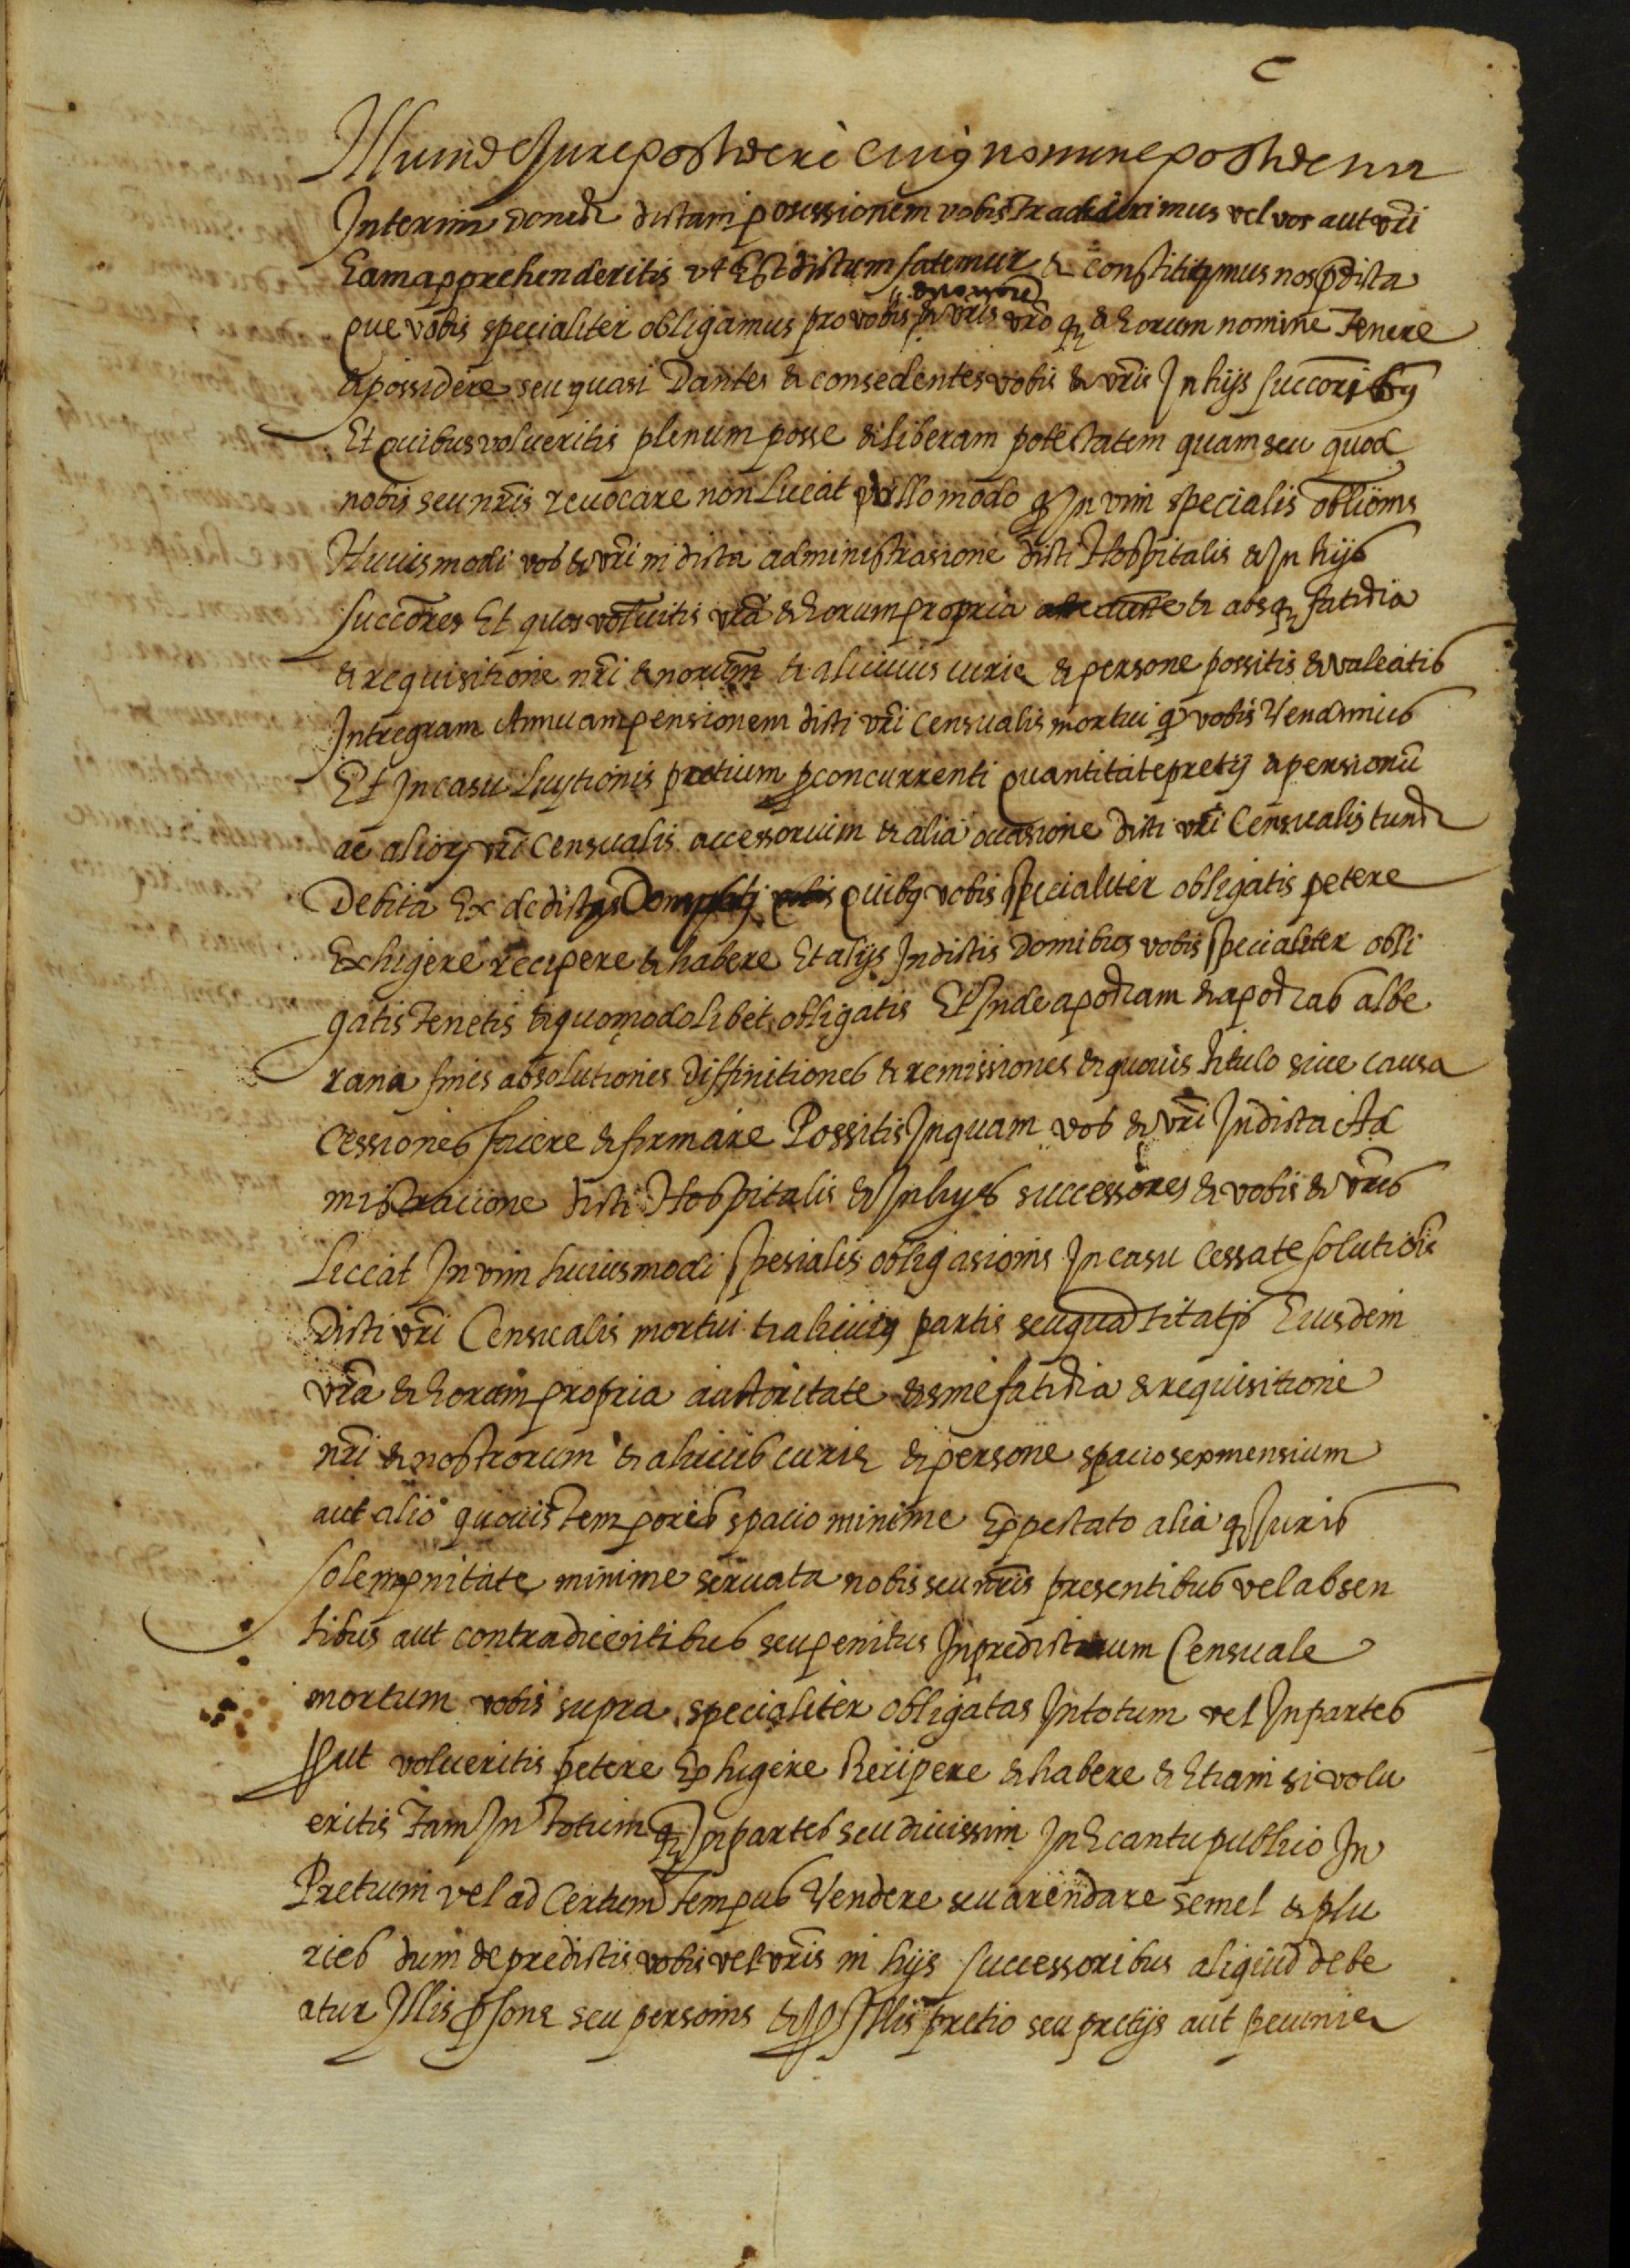 C
Illum de Jure possidere cuiq nomine possidetur
Interim donech dictam possessionem vobis tradiderimus vel vos aut vri
Eam apprehenderitis vt Est dictum fatemur & constituimus nos pdicta
que vobis specialiter obligamus pro vobis & vris vro q & Eorum nomine Tenere
& possidere seu quasi Dantes & consedentes vobis & vris In hijs succoribq
Et quibus volueritis plenum posse & liberam potestatem quam seu quod
nobis seu nris revocare non Liceat vllo modo q In vim specialis oblioms
Huiusmodi vos & vri in dicta administrasione dicti Hospitalis & In hijs
succores Et quos voluitis vra & Eorum propria & absq fatidia
& requisitione nri & norum & alicuius curie & persone possitis & valeatis
Integram Annuam pensionem dicti vri Censualis mortui q vobis Vendimus
Et In casu Luytionis pretium pconcurrenti quantitate pretij & pensionu
ac alioru vri Censualis accessorium & alia occasione dicti vri Censualis tunch
Debita Ex de dictis quibq vobis specialiter obligatis petere
Exhigere recipere & habere Et alijs In dictis Domibus vobis specialiter obli
gatis Tenetis & quomodolibet obligatis Et Inde apocham & apochas albe
rana fines absolutiones Diffinitiones & remissiones & quovis titulo sive causa
Cessiones facere & firmare Possitis Inquam vos & vri In dicta Ad
mistracione dicti Hospitalis & In hijs successores & vobis & vris
Liceat In vim huiusmodi spesialis obligasionis In casu Cessate solutiois
Dicti vri Censualis mortui & alicuiq partis seu quantitatis Eiusdem
vra & Eorum propria auctoritate & sine fatidia & requisitione
nri & nostrorum & alicuius curie & persone spacio sex mensium
aut alio quovis Temporis spacio minime Expectato alia q Juris
solempnitate minime servata nobis seu nris presentibus vel absen
tibus aut contradicentibus seu penitus In predictum Censuale
mortum vobis supra specialiter obligatas In totum vel In partes
put volueritis petere Exhigere Recipere & habere & Etiam si volu
eritis Tam In Totum q In partes seu divissim In Encantu publico In
Pretium vel ad Certum Tempus Vendere seu arendare semel & plu
ries dum de predictis vobis vel vris in hijs successoribus aliquid debe
atur Illis psone seu personis & p Illis pretio seu pretijs aut pecunie